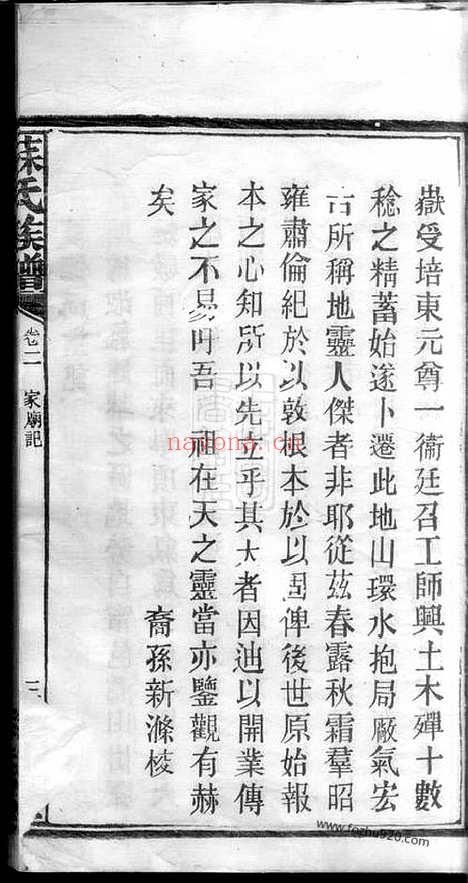 嶽受培東元尊一衞廷召工師興土木殫十數
稔之精蓄始遂卜遷此地山環水抱局厰氣宏
古所稱地靈人傑者非耶從茲春露秋霜羣昭
雍肅倫紀於以敦根本於以固俾後世原始報
本之心知所以先立乎其大者因迪以開業傳
家之不易吁吾 祖在天之靈當亦鑒觀有赫
矣 裔孫新滌梭
蘇氏族譜
卷二 家廟記
nayona.cn
www.fozhu920.com